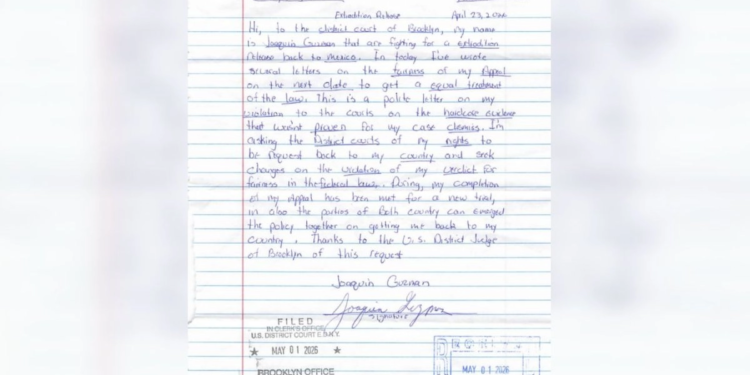 Extradition Release April 23, 2026
Hi, to the district court of Brooklyn, my name
is Joaquin Guzman that are fighting for a extradition
release back to mexico. In today I've wrote
several letters on the fairness of my Appeal
on the next date to get a equal treatment
of the law. This is a polite letter on my
violation to the courts on the hardcore evidence
that wasn't proven for my case I'm
asking the District courts of my rights to
be back to my country and seek
changes on the violation of my verdict for
fairness in the federal law. During, my completion
of my Appeal has been met for a new trial,
in also the parties of Both country can
the policy together on getting me back to my
country. Thanks to the U.S. District Judge
of Brooklyn of this request
Joaquin Guzman
Signature
FILED
IN CLERK'S OFFICE
U.S. DISTRICT COURT E.D.N.Y.
★ MAY 01 2026 ★
BROOKLYN OFFICE
MAY - 01 2026